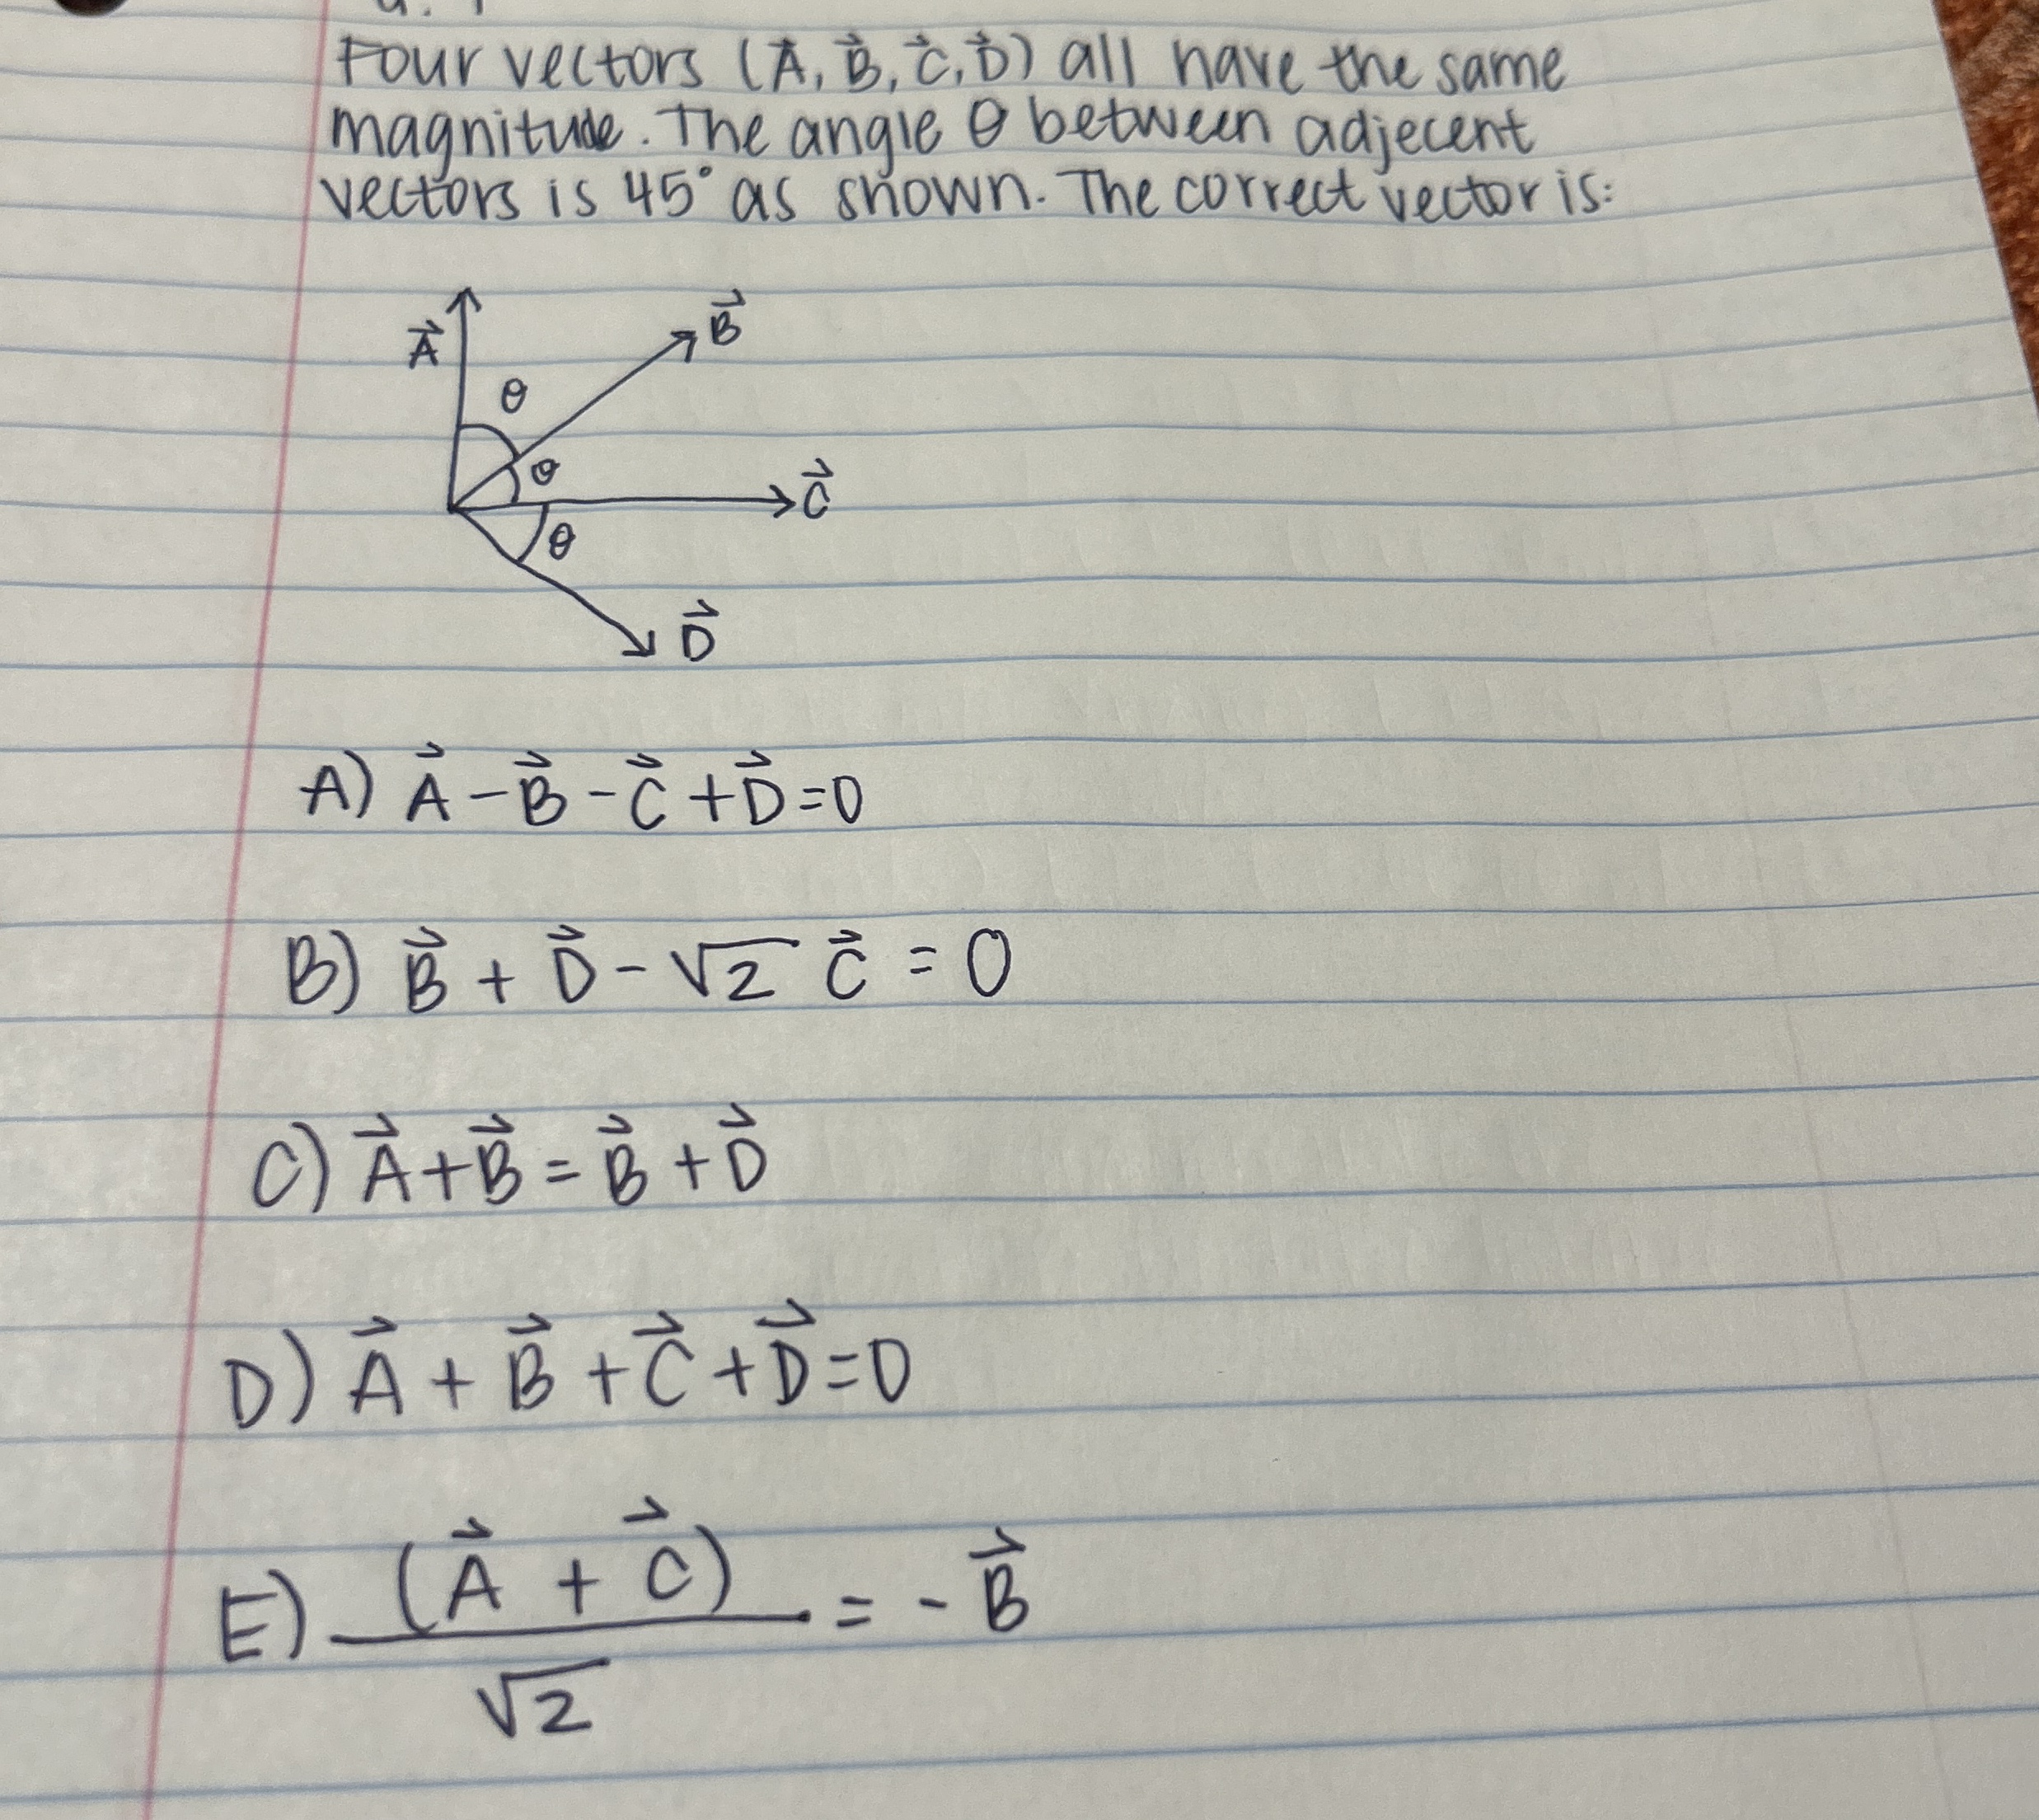 Four vectors (A⃗, B⃗, C⃗, D⃗) all have the same
magnitude. The angle θ between adjecent
vectors is 45° as shown. The correct vector is:
A⃗
B⃗
θ
θ
C⃗
θ
D⃗
A) A⃗ - B⃗ - C⃗ + D⃗ = 0
B) B⃗ + D⃗ - √2 C⃗ = 0
C) A⃗ + B⃗ = B⃗ + D⃗
D) A⃗ + B⃗ + C⃗ + D⃗ = 0
E) (A⃗ + C⃗) / √2 = - B⃗